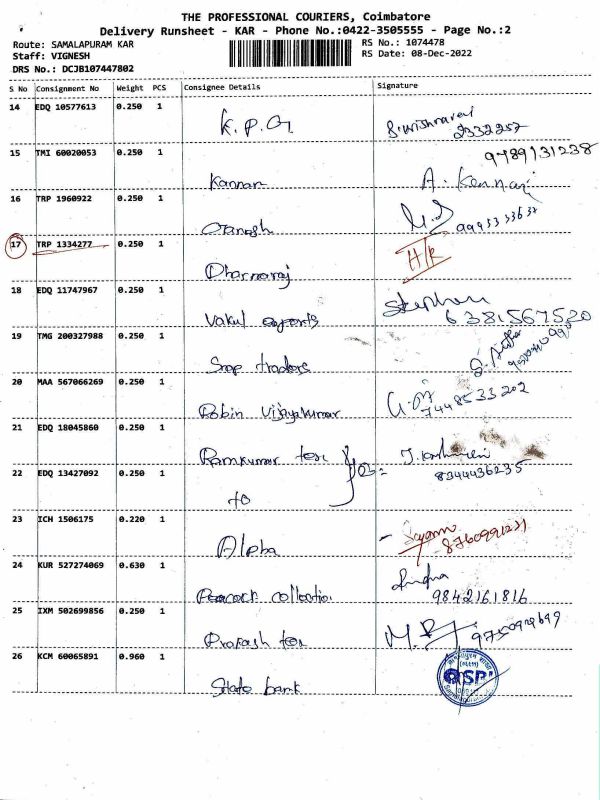 THE PROFESSIONAL COURIERS, Coimbatore
Delivery Runsheet - KAR - Phone No.:0422-3505555 - Page No.:2
Route: SAMALAPURAM KAR
RS No.: 1074478
Staff: VIGNESH
RS Date: 08-Dec-2022
DRS No.: DCJB107447802
S No Consignment No Weight PCS Consignee Details Signature
14 EDQ 10577613 0.250 1
K.P.G
2332257
15 TMI 60020053 0.250 1
9789131238
Kannan
16 TRP 1960922 0.250 1
Ganesh
17 TRP 1334277 0.250 1
Dharmaraj
18 EDQ 11747967 0.250 1
Stephen
Vakul exports 6381567520
19 TMG 200327988 0.250 1
Snap traders
20 MAA 567066269 0.250 1
Robin Vijayakumar 7448533202
21 EDQ 18045860 0.250 1
Ramkumar tex
8344436235
22 EDQ 13427092 0.250 1
to
23 ICH 1506175 0.220 1
Alpha 8760991231
24 KUR 527274069 0.630 1
Peacock collection 9842161816
25 IXM 502699856 0.250 1
Prakash tex
26 KCM 60065891 0.960 1
State bank